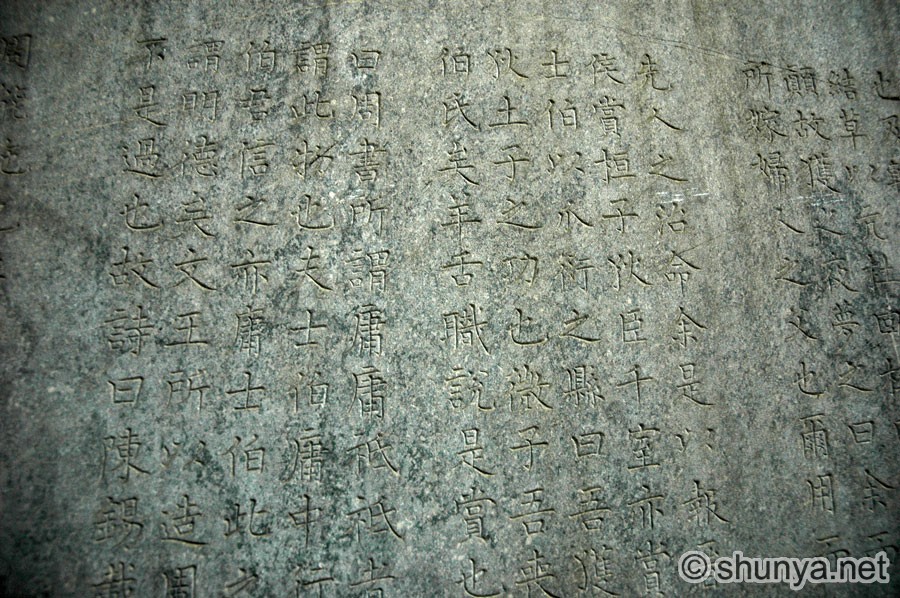 也及輔
結草以亢杜回
顛故獲之夜夢之曰余而
所嫁婦人之父也爾用
先人之治命余是以報
侯賞桓子狄臣千室亦賞
士伯以瓜衍之縣曰吾獲
狄土子之功也微子吾喪
伯氏矣羊舌職說是賞也
曰周書所謂庸庸祗祗者
謂此物也夫士伯庸中行
伯君信之亦庸士伯此之
謂明德矣文王所以造周
不是過也故詩曰陳錫哉
周能施
©shunya.net